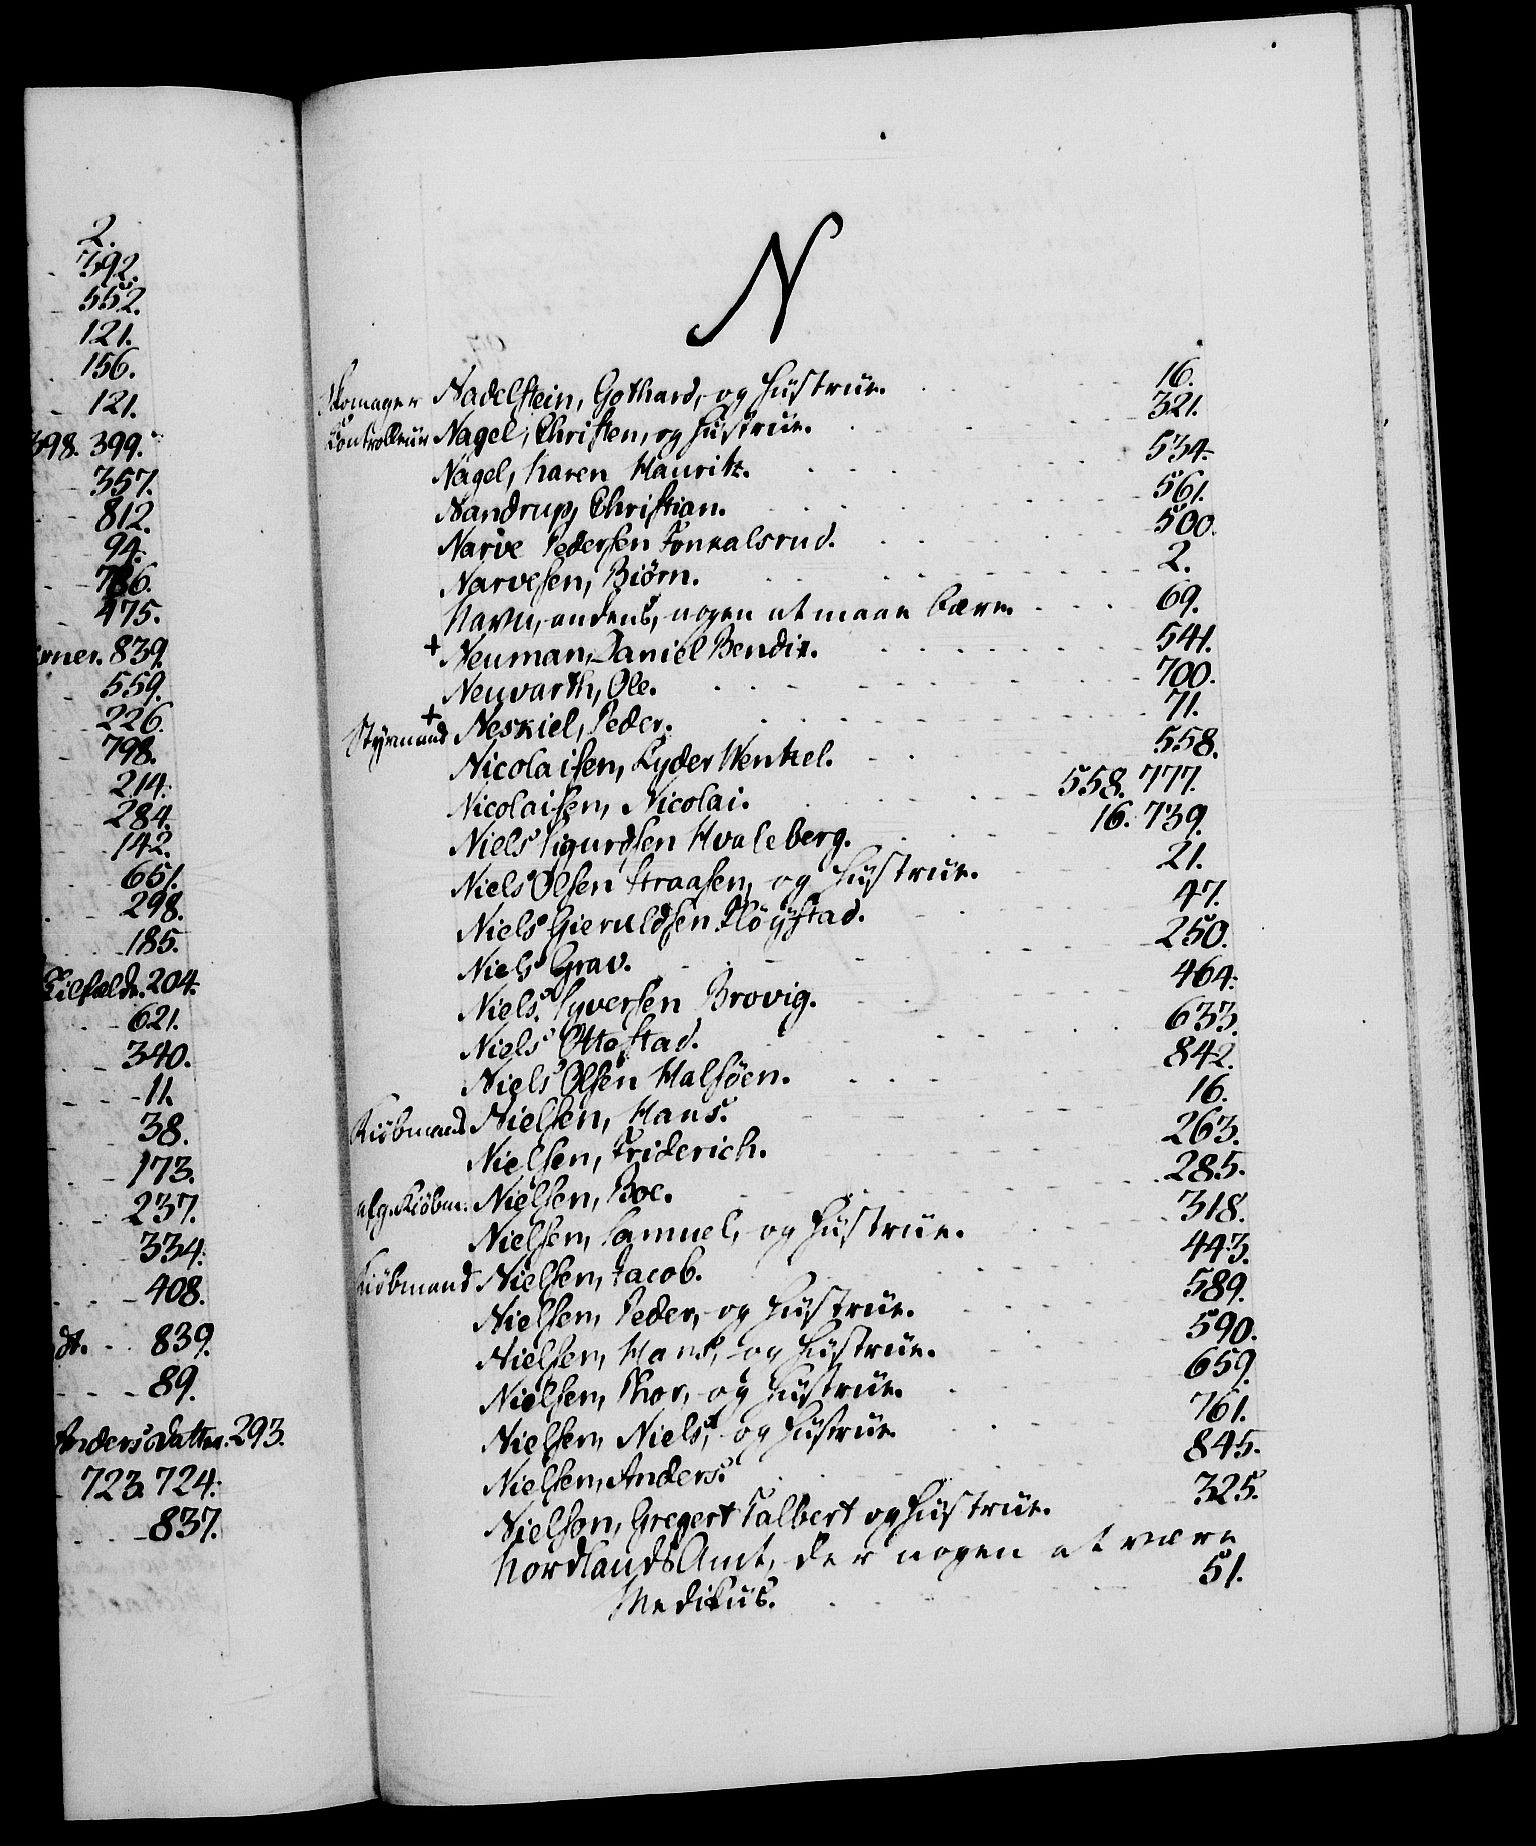 2.
792.
552.
121.
156.
121.
398. 399.
357.
812.
94.
786.
475.
839.
559.
226.
798.
214.
284.
142.
651.
298.
185.
204.
621.
340.
11.
38.
173.
237.
334.
408.
dt. 839.
89.
Andersdatter. 293.
723. 724.
837.
N
Skomager Nadelstein, Gothard, og Hustrue. 16.
Controlleur Nagel, Christen, og Hustrue. 321.
Nagel, Karen Mauritz. 534.
Nandrup, Christian. 561.
Narve Pedersen Fonkalsrud. 500.
Narvesen, Biörn. 2.
Navn, andens, nogen at maae bære. 69.
+ Neuman, Daniel Bendix. 541.
Neuvarth, Ole. 700.
Styrmand + Neskiel, Peder. 71.
Nicolaisen, Lyder Wentzel. 558.
Nicolaisen, Nicolai. 558. 777.
Niels Sigurdsen Hvaleberg. 16. 739.
Niels Olsen Straasen, og Hustrue. 21.
Niels Gieruldsen Flöystad. 47.
Niels Grav. 250.
Niels Syversen Brovig. 464.
Niels Ottestad. 633.
Niels Olsen Halsöen. 842.
Kiöbmand Nielsen, Hans. 16.
Nielsen, Friderich. 263.
afg. Kiöbm. Nielsen, Boe. 285.
Nielsen, Samuel, og Hustrue. 318.
Kiöbmand Nielsen, Jacob. 443.
Nielsen, Peder, og Hustrue. 589.
Nielsen, Hans, og Hustrue. 590.
Nielsen, Thor, og Hustrue. 659.
Nielsen, Niels, og Hustrue 761.
Nielsen, Anders. 845.
Nielsen, Gregert Talbert og Hustrue. 325.
Nordlands Amt, der nogen at være
Medikus. 51.